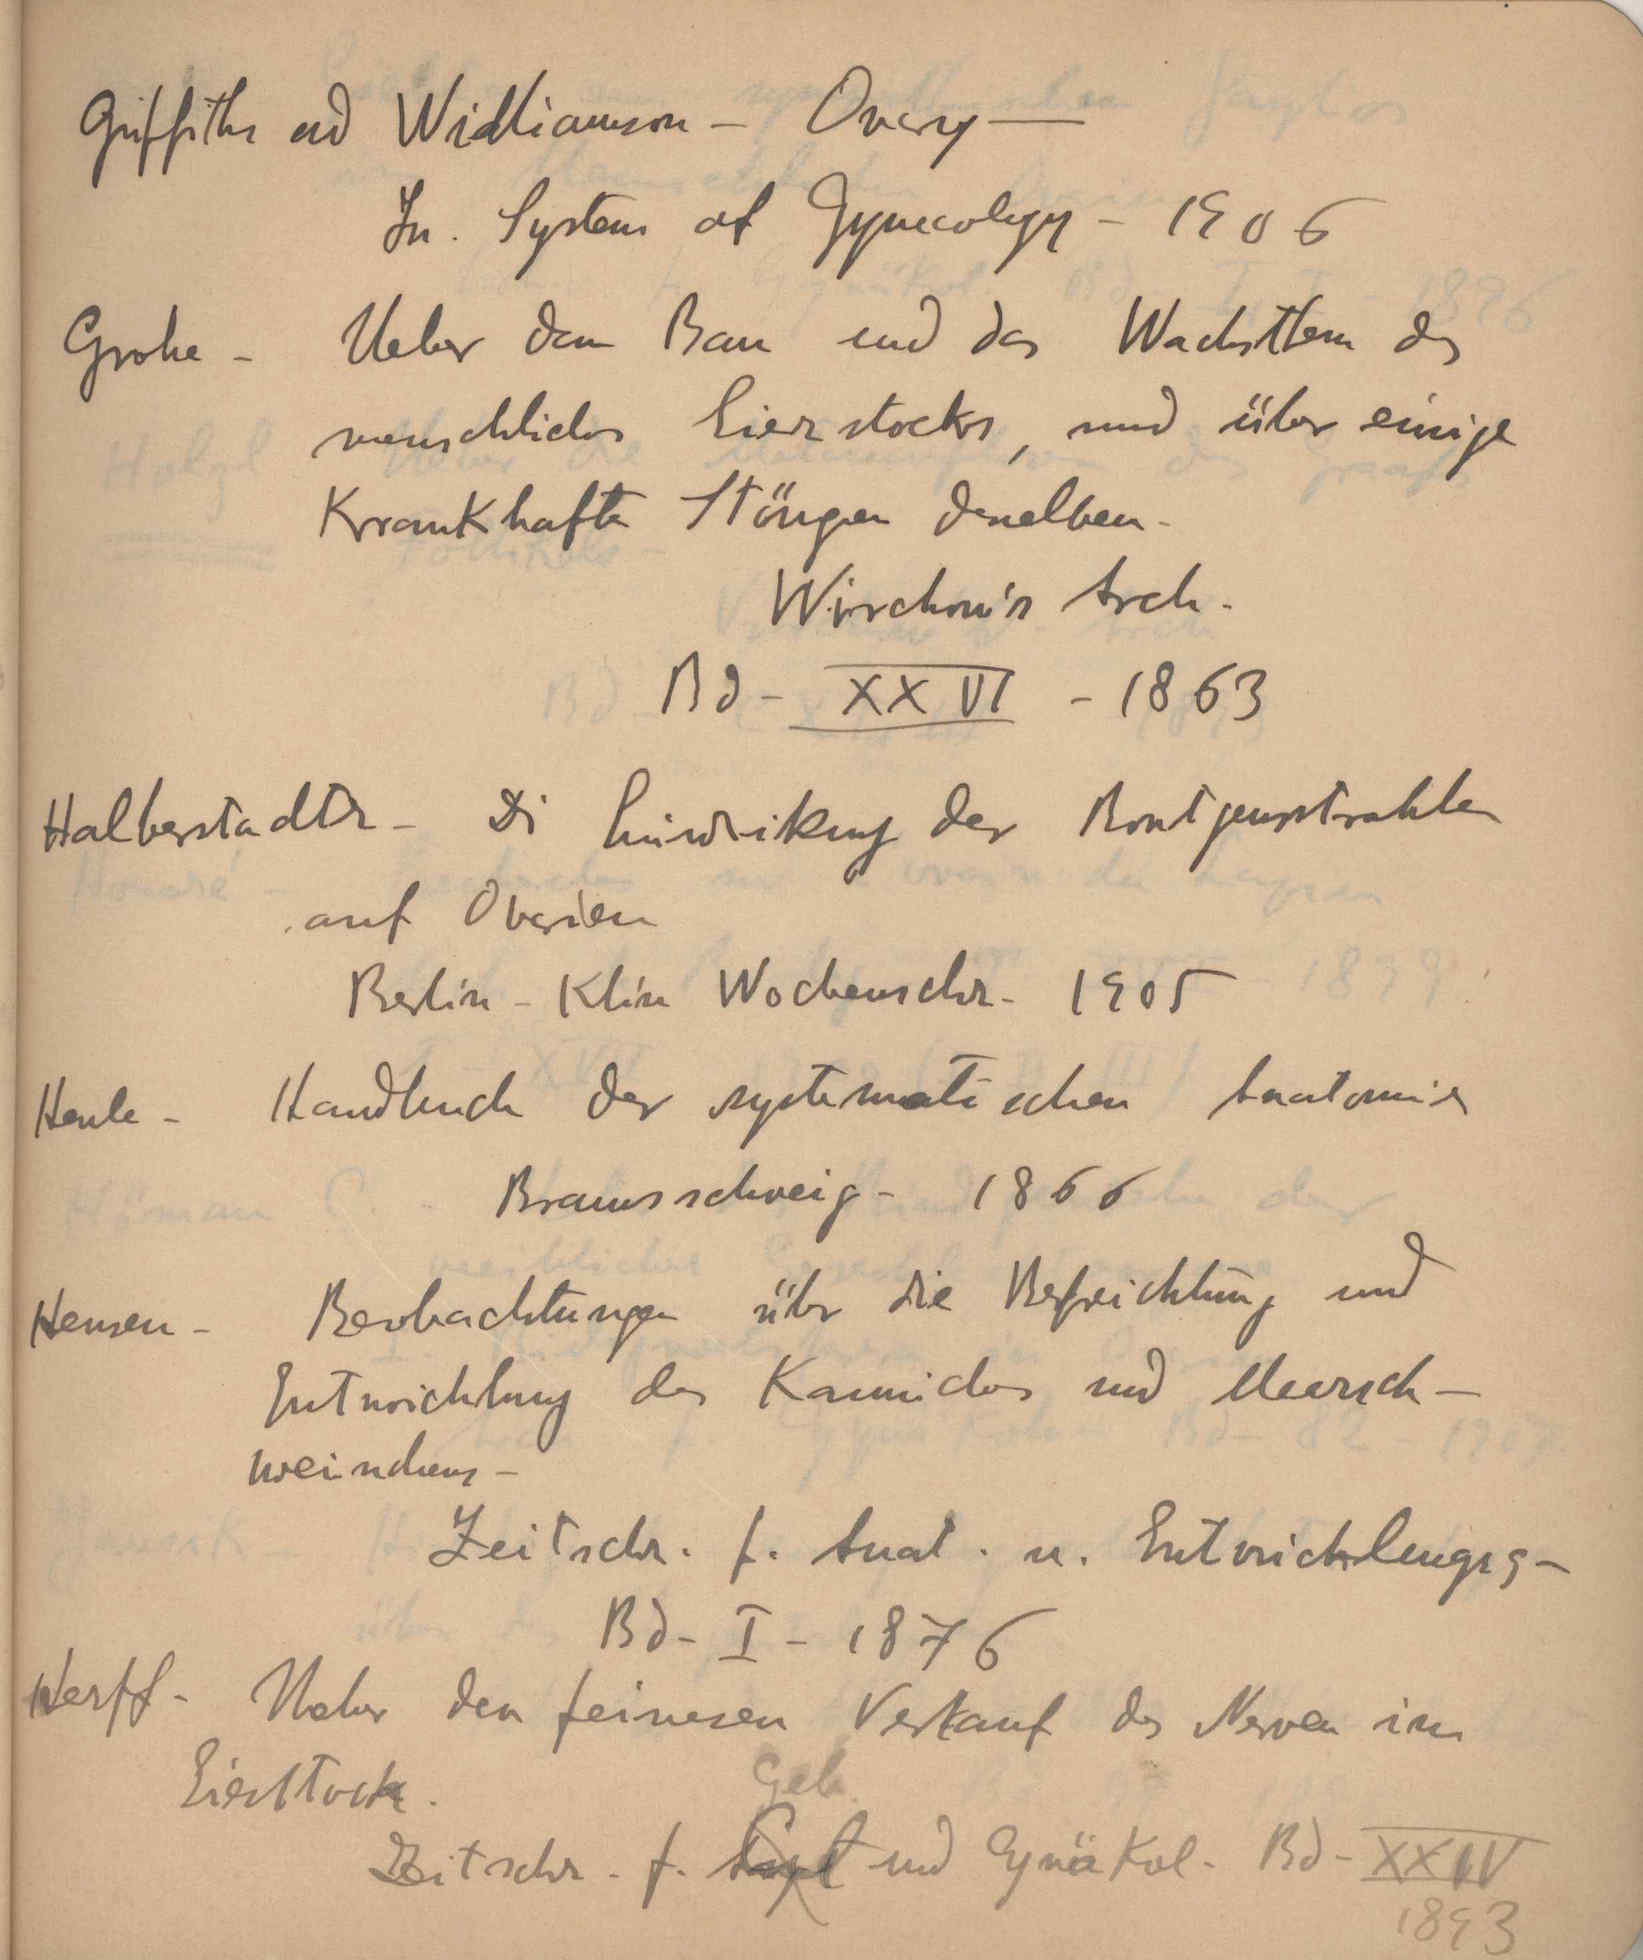 Griffiths and Williamson - Ovary —
In. System of Gynecology - 1906
Grohe - Ueber dem Bau und das Wachsthum des
menschliches Eierstocks, und über einige
Krankhafte Störgen denelben -
Wirchow's Arch.
Bd - XXVI - 1863
Halberstadtr - Di Einwirkung der Rontgenstrahlen
auf Ovarien
Berlin - Klin Wochenschr - 1905
Henle - Handbuch der systematischen Anatomie
Braunsschweig - 1866
Hensen - Beobachtungen über die Befrichtung und
Entwicklung des Kaninches und Meersch-
weinchens -
Zeitschr. f. Anat. u. Entwicklungsg -
Bd - I - 1876
Herff - Ueber den feineren Verlauf des Nerven im
Eierstock.
Geb
Zeitschr. f. und Gynäkol. Bd - XXIV
1893